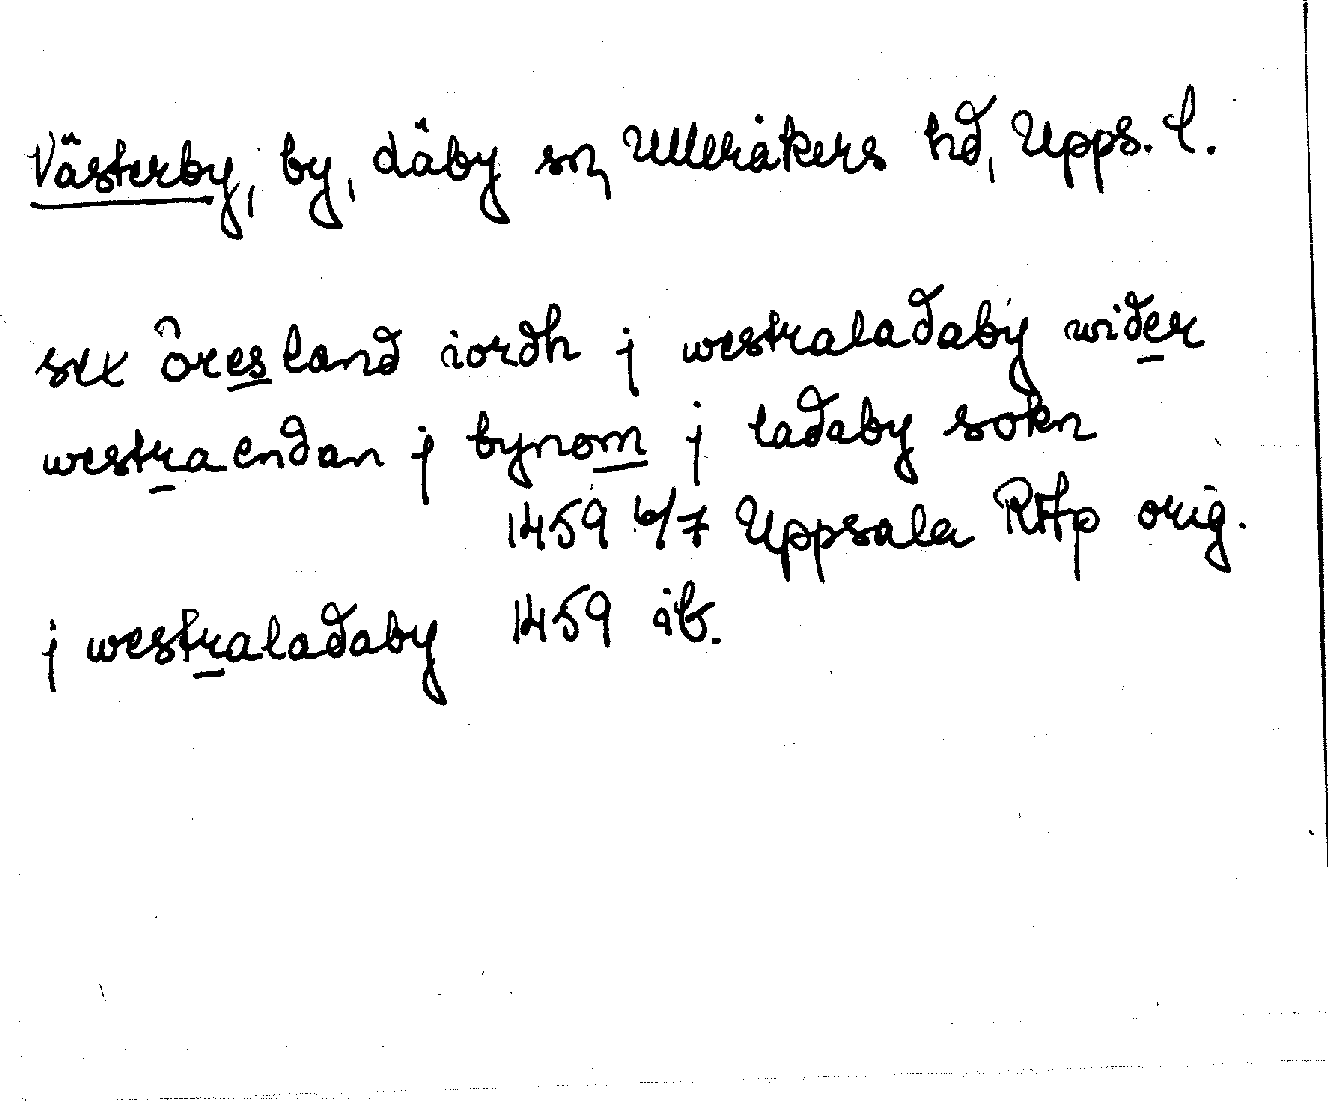 Västerby, by, Läby sn, Ulleråkers hd, Upps. l.
sex öresland iordh j westraladaby wider
westraendan j bynom j ladaby sokn
1459 6/7 Uppsala RAp orig.
j westraladaby 1459 ib.